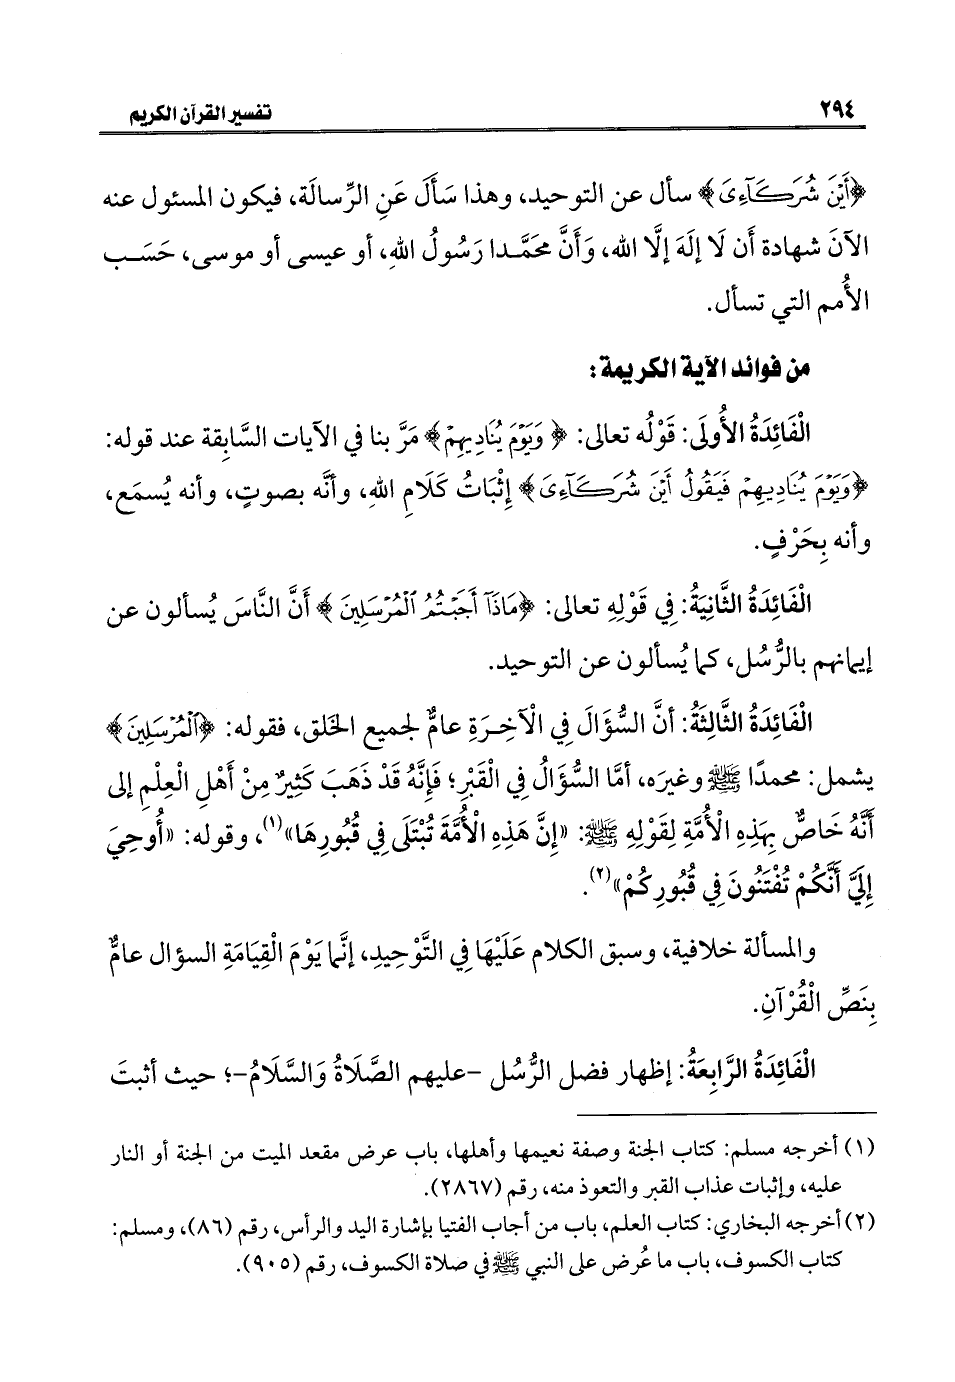 ٢٩٤ تفسير القرآن الكريم
﴿أَيْنَ شُرَكَآءِىَ﴾ سأل عن التوحيد، وهذا سَأَلَ عَنِ الرِّسالَة، فيكون المسئول عنه
الآنَ شهادة أَن لَا إِلَهَ إِلَّا الله، وَأَنَّ مُحَمَّدا رَسُولُ اللهِ، أو عيسى أو موسى، حَسَب
الأُمم التي تسأل.
من فوائد الآية الكريمة:
الْفَائِدَةُ الأُولَى: قَوْلُه تعالى: ﴿وَيَوْمَ يُنَادِيهِمْ﴾ مَرَّ بنا في الآيات السَّابِقة عند قوله:
﴿وَيَوْمَ يُنَادِيهِمْ فَيَقُولُ أَيْنَ شُرَكَآءِىَ﴾ إِثْبَاتُ كَلَامِ اللهِ، وأنَّه بصوتٍ، وأنه يُسمَع،
وأنه بِحَرْفٍ.
الْفَائِدَةُ الثَّانِيَةُ: فِي قَوْلِهِ تعالى: ﴿مَاذَآ أَجَبْتُمُ ٱلْمُرْسَلِينَ﴾ أَنَّ النَّاسَ يُسألون عن
إيمانهم بالرُّسُل، كما يُسألون عن التوحيد.
الْفَائِدَةُ الثَّالِثَةُ: أنَّ السُّؤَالَ فِي الْآخِرَةِ عامٌّ لجميع الخَلق، فقوله: ﴿ٱلْمُرْسَلِينَ﴾
يشمل: محمدًا ﷺ وغيرَه، أمَّا السُّؤَالُ فِي الْقَبْرِ؛ فَإِنَّهُ قَدْ ذَهَبَ كَثِيرٌ مِنْ أَهْلِ الْعِلْمِ إلى
أَنَّهُ خَاصٌّ بِهَذِهِ الْأُمَّةِ لِقَوْلِهِ ﷺ: «إِنَّ هَذِهِ الْأُمَّةَ تُبْتَلَى فِي قُبُورِهَا»(١)، وقوله: «أُوحِيَ
إِلَيَّ أَنَّكُمْ تُفْتَنُونَ فِي قُبُورِكُمْ»(٢).
والمسألة خلافية، وسبق الكلام عَلَيْهَا فِي التَّوْحِيدِ، إنَّما يَوْمَ الْقِيَامَةِ السؤال عامٌّ
بِنَصِّ الْقُرْآنِ.
الْفَائِدَةُ الرَّابِعَةُ: إظهار فضل الرُّسُل -عليهم الصَّلَاةُ وَالسَّلَامُ-؛ حيث أثبتَ
(١) أخرجه مسلم: كتاب الجنة وصفة نعيمها وأهلها، باب عرض مقعد الميت من الجنة أو النار
عليه، وإثبات عذاب القبر والتعوذ منه، رقم (٢٨٦٧).
(٢) أخرجه البخاري: كتاب العلم، باب من أجاب الفتيا بإشارة اليد والرأس، رقم (٨٦)، ومسلم:
كتاب الكسوف، باب ما عُرض على النبي ﷺ في صلاة الكسوف، رقم (٩٠٥).